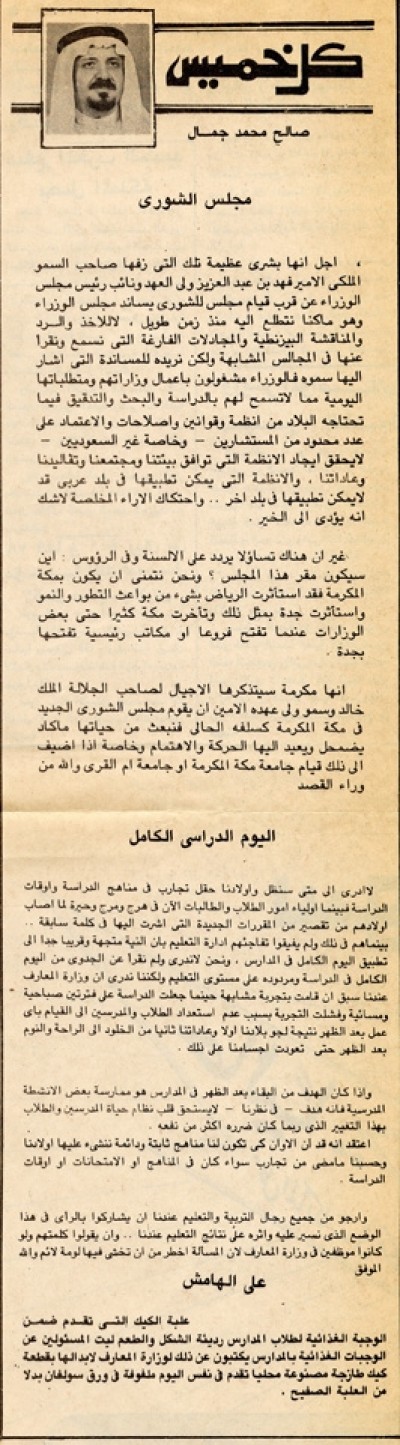 كل خميس
صالح محمد جمال
مجلس الشورى
، اجل انها بشرى عظيمة تلك التى زفها صاحب السمو
الملكى الامير فهد بن عبد العزيز ولى العهد ونائب رئيس مجلس
الوزراء عن قرب قيام مجلس للشورى يساند مجلس الوزراء
وهو ماكنا نتطلع اليه منذ زمن طويل ، لاللاخذ والرد
والمناقشة البيزنطية والمجادلات الفارغة التى نسمع ونقرأ
عنها فى المجالس المشابهة ولكن نريده للمساندة التى اشار
اليها سموه فالوزراء مشغولون باعمال وزاراتهم ومتطلباتها
اليومية مما لاتسمح لهم بالدراسة والبحث والتدقيق فيما
تحتاجه البلاد من انظمة وقوانين واصلاحات والاعتماد على
عدد محدود من المستشارين – وخاصة غير السعوديين –
لايحقق ايجاد الانظمة التى توافق بيئتنا ومجتمعنا وتقاليدنا
وعاداتنا ، والانظمة التى يمكن تطبيقها فى بلد عربى قد
لايمكن تطبيقها فى بلد اخر .. واحتكاك الاراء المخلصة لاشك
انه يؤدى الى الخير .
غير ان هناك تساؤلا يردد على الالسنة وفى الرؤوس : اين
سيكون مقر هذا المجلس ؟ ونحن نتمنى ان يكون بمكة
المكرمة فقد استأثرت الرياض بشىء من بواعث التطور والنمو
واستأثرت جدة بمثل ذلك وتأخرت مكة كثيرا حتى بعض
الوزارات عندما تفتح فروعا او مكاتب رئيسية تفتحها
بجدة .
انها مكرمة سيتذكرها الاجيال لصاحب الجلالة الملك
خالد وسمو ولى عهده الامين ان يقوم مجلس الشورى الجديد
فى مكة المكرمة كسلفه الحالى فنبعث من حياتها ماكاد
يضمحل ويعيد اليها الحركة والاهتمام وخاصة اذا اضيف
الى ذلك قيام جامعة مكة المكرمة او جامعة ام القرى والله من
وراء القصد
اليوم الدراسى الكامل
لاادرى الى متى سنظل واولادنا حقل تجارب فى مناهج الدراسة واوقات
الدراسة فبينما اولياء امور الطلاب والطالبات الآن فى هرج ومرج وحيرة لما اصاب
اولادهم من تقصير من المقررات الجديدة التى اشرت اليها فى كلمة سابقة ..
بينماهم فى ذلك ولم يفيقوا تفاجئهم ادارة التعليم بان النية متجهة وقريبا جدا الى
تطبيق اليوم الكامل فى المدارس ، ونحن لاندرى ولم نقرأ عن الجدوى من اليوم
الكامل فى الدراسة ومردوده على مستوى التعليم ولكننا ندرى ان وزارة المعارف
عندنا سبق ان قامت بتجربة مشابهة حينما جعلت الدراسة على فترتين صباحية
ومسائية وفشلت التجربة بسبب عدم استعداد الطلاب والمدرسين الى القيام باى
عمل بعد الظهر نتيجة لجو بلادنا اولا وعاداتنا ثانيا من الخلود الى الراحة والنوم
بعد الظهر حتى تعودت اجسامنا على ذلك .
واذا كان الهدف من البقاء بعد الظهر فى المدارس هو ممارسة بعض الانشطة
المدرسية فانه هدف – فى نظرنا – لايستحق قلب نظام حياة المدرسين والطلاب
بهذا التغيير الذى ربما كان ضرره اكثر من نفعه .
اعتقد انه قد ان الاوان كى تكون لنا مناهج ثابتة ودائمة ننشىء عليها اولادنا
وحسبنا مامضى من تجارب سواء كان فى المناهج او الامتحانات او اوقات
الدراسة .
وارجو من جميع رجال التربية والتعليم عندنا ان يشاركوا بالرأى فى هذا
الوضع الذى نسير عليه واثره على نتائج التعليم عندنا .. وان يقولوا كلمتهم ولو
كانوا موظفين فى وزارة المعارف لان المسألة اخطر من ان تخشى فيها لومة لائم والله
الموفق
على الهامش
علبة الكيك التى تقدم ضمن
الوجبة الغذائية لطلاب المدارس رديئة الشكل والطعم ليت المسئولين عن
الوجبات الغذائية بالمدارس يكتبون عن ذلك لوزارة المعارف لابدالها بقطعة
كيك طازجة مصنوعة محليا تقدم فى نفس اليوم ملفوفة فى ورق سولفان بدلا
من العلبة الصفيح .